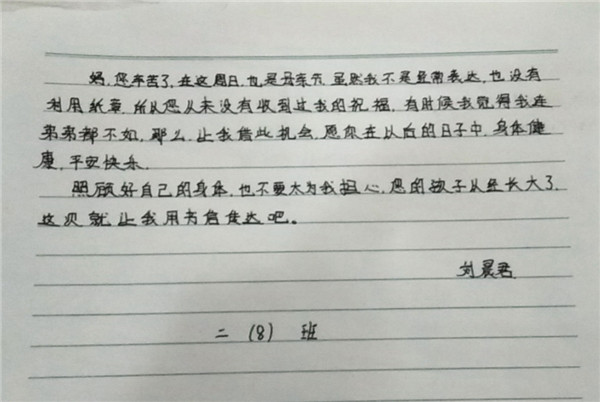 妈,您辛苦了,在这周日,也是母亲节,虽然我不是经常表达,也没有
利用纸章,所以您从未没有收到过我的祝福,有时候我觉得我连
弟弟都不如,那么,让我借此机会,愿你在以后的日子中,身体健
康,平安快乐.
照顾好自己的身体,也不要太为我担心,您的孩子从经长大了,
这次就让我用书信表达吧。
刘晨君
二(8)班